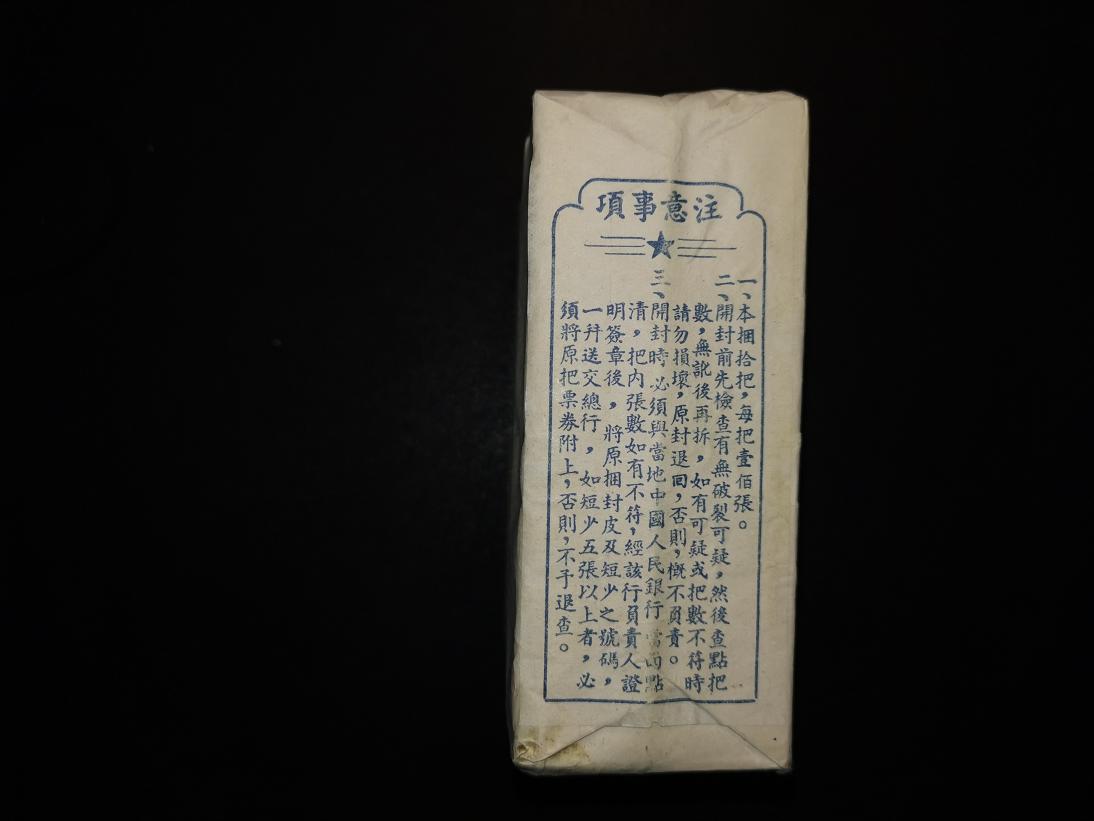 注意事項
一、本捆拾把，每把壹佰張。
二、開封前先檢查有無破裂可疑，然後查點把
數，無訛後再拆，如有可疑或把數不符時
請勿損壞，原封退回，否則，概不負責。
三、開封時必須與當地中國人民銀行當面點
清，把内張數如有不符，經該行負責人證
明簽章後，將原捆封皮及短少之號碼，
一并送交總行，如短少五張以上者，必
須將原把票券附上，否則，不予退查。